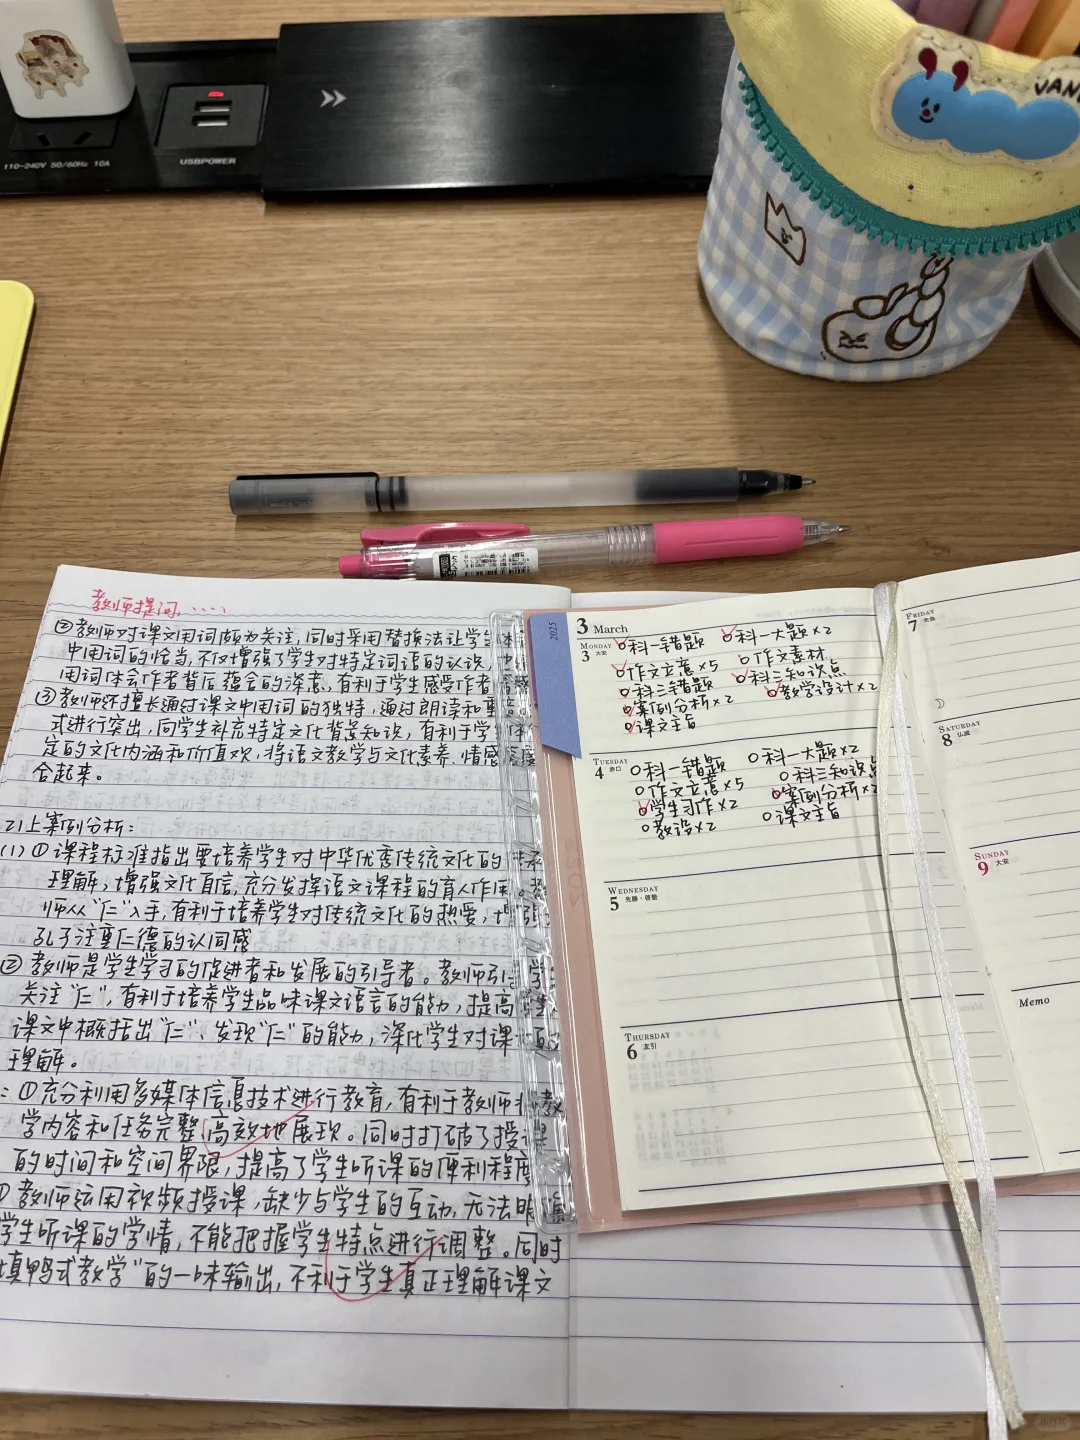 110-240V 50/60Hz 10A
USBPOWER
教师提词、....
②教师对课文用词颇为关注，同时采用替换法让学生体
中用词的恰当，不仅增强了学生对特定词语的认识，也
用词体会作者背后蕴含的深意，有利于学生感受作者
③教师还擅长通过课文中用词的独特，通过朗读和重
式进行突出，向学生补充特定文化背景知识，有利于学
定的文化内涵和价值观，将语文教学与文化素养、情感
合起来。
21上案例分析：
(1)①课程标准指出要培养学生对中华优秀传统文化的
理解，增强文化自信，充分发挥语文课程的育人作用。
师从“仁”入手，有利于培养学生对传统文化的热爱，增
孔子注重仁德的认同感
②教师是学生学习的促进者和发展的引导者。教师引
关注“仁”，有利于培养学生品味课文语言的能力，提高学生
课文中概括出“仁”、发现“仁”的能力，深化学生对课
理解。
：①充分利用多媒体信息技术进行教育，有利于教师将教
学内容和任务完整，高效地展现。同时打破了授课
的时间和空间界限，提高了学生听课的便利程度
教师运用视频授课，缺少与学生的互动，无法明确
学生听课的学情，不能把握学生特点进行调整。同时
填鸭式教学”的一味输出，不利于学生真正理解课文
2025
3 March
MONDAY
3 大安
科一错题 科一大题×2
作文立意×5 作文素材
科三错题 科三知识点
案例分析×2 教学设计×2
课文主旨
TUESDAY
4 赤口
科一错题 科一大题×2
作文立意×5 科三知识点
学生习作×2 案例分析×2
教设×2 课文主旨
WEDNESDAY
5 先勝・啓蟄
THURSDAY
6 友引
FRIDAY
7 先負
SATURDAY
8 仏滅
SUNDAY
9 大安
Memo